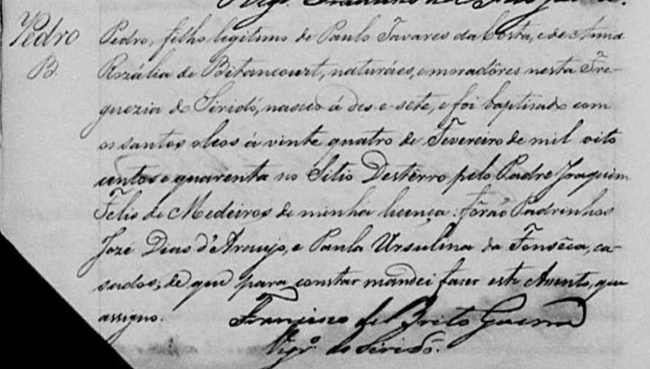 Pedro
B.
Pedro, filho legitimo de Paulo Tavares da Costa, e de Anna
Rozália de Bitancourt, naturáes, e moradôres nesta Fre-
guezia do Siridó, nasceo á des e sete, e foi baptisado com
os santos oleos á vinte quatro de Fevereiro de mil oito
centos e quarenta no Sitio Desterro pelo Padre Joaquim
Felis de Medeiros de minha licença: fôrão Padrinhos
Jozé Dias d'Araujo, e Paula Ursulina da Fonsêca, ca-
sados; de que para constar mandei faser este Assento, que
assigno.
Francisco de Brito Guerra
Vigrº. do Siridó.